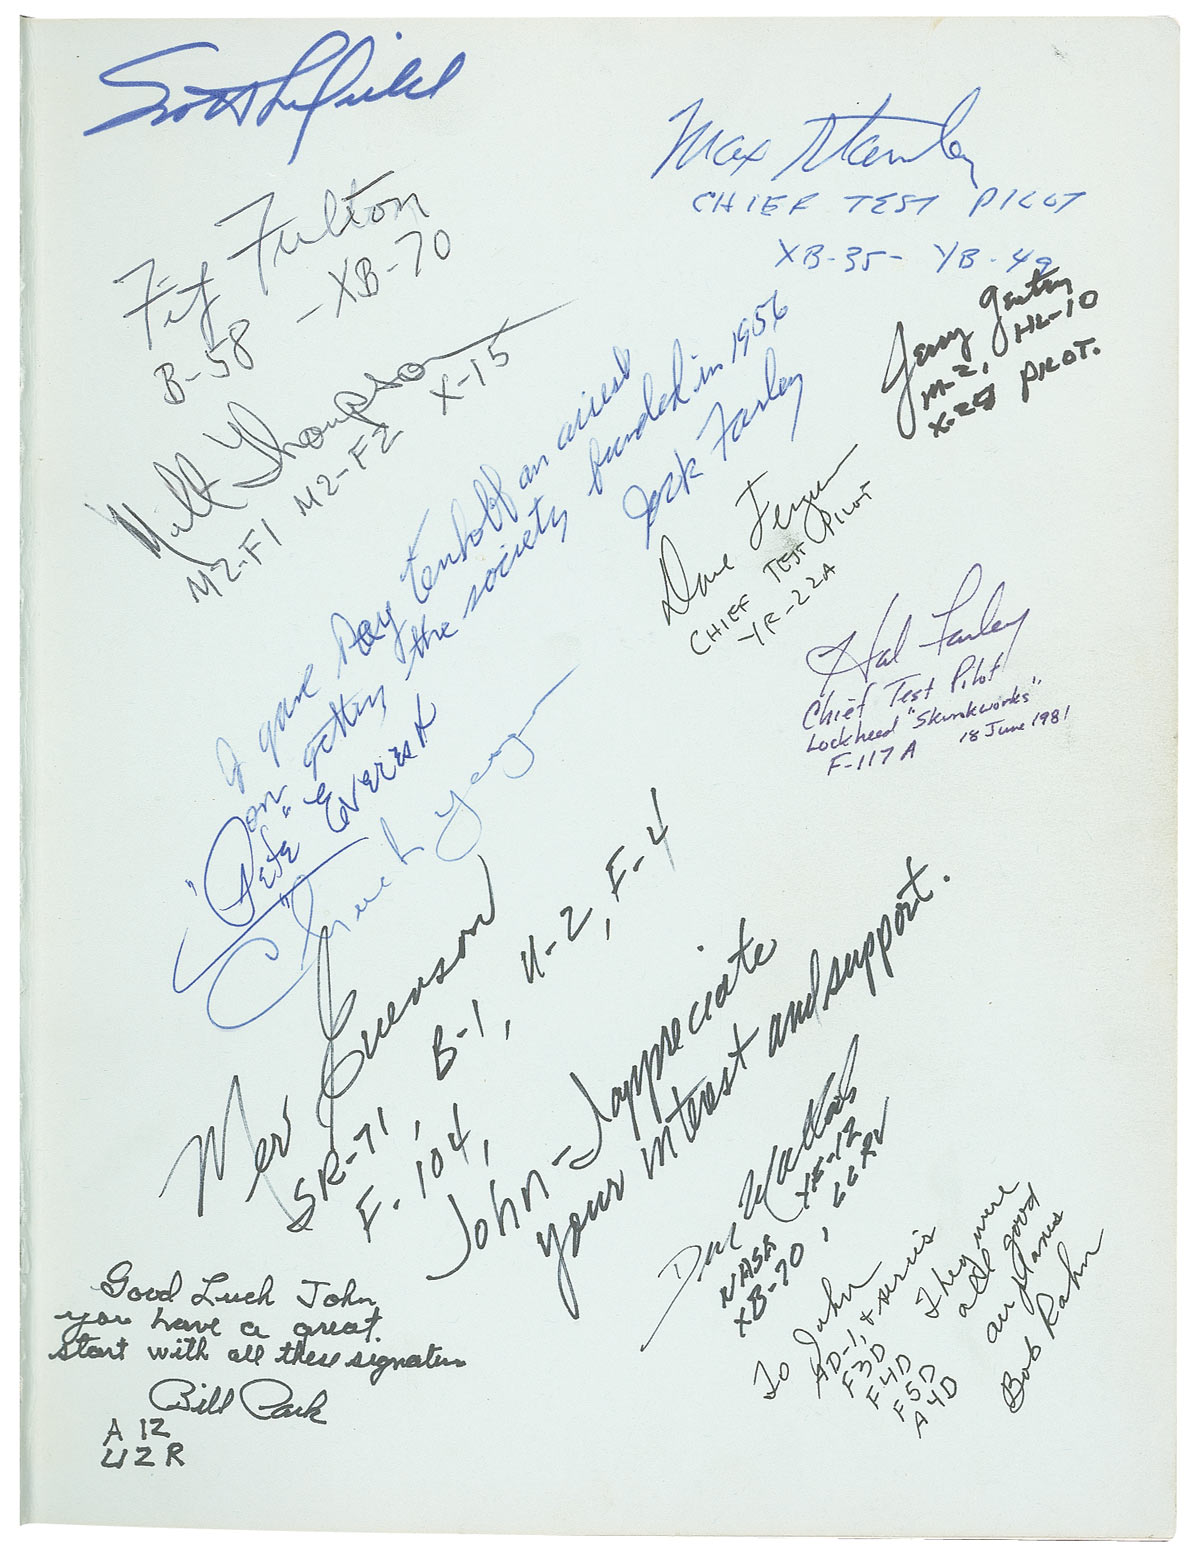 Scott Crossfield
Max Stanley
CHIEF TEST PILOT
XB-35- YB-49
Fitz Fulton
B-58 -XB-70
Jerry Gentry
M-2, HL-10
X-24 PILOT.
Milt Thompson
M2-F1 M2-F2 X-15
I gave Ray Tenhoff an assist
on getting the society funded in 1956
Jack Farley
Dave Ferguson
CHIEF TEST PILOT
YF-22A
Hal Farley
Chief Test Pilot
Lockheed "Skunkworks"
F-117A 18 June 1981
"Pete" Everest
Chuck Yeager
Mervin Evenson
SR-71, B-1, U-2, F-4
F-104,
John-I appreciate
your interest and support.
Don Mallick
NASA YF-12
XB-70, LLRV
Good Luck John
you have a great
start with all these signatures
Bill Park
A 12
U2R
To John
AD-1, & series
F3D
F4D
F5D
A4D
They were
all good
air planes
Bob Rahn